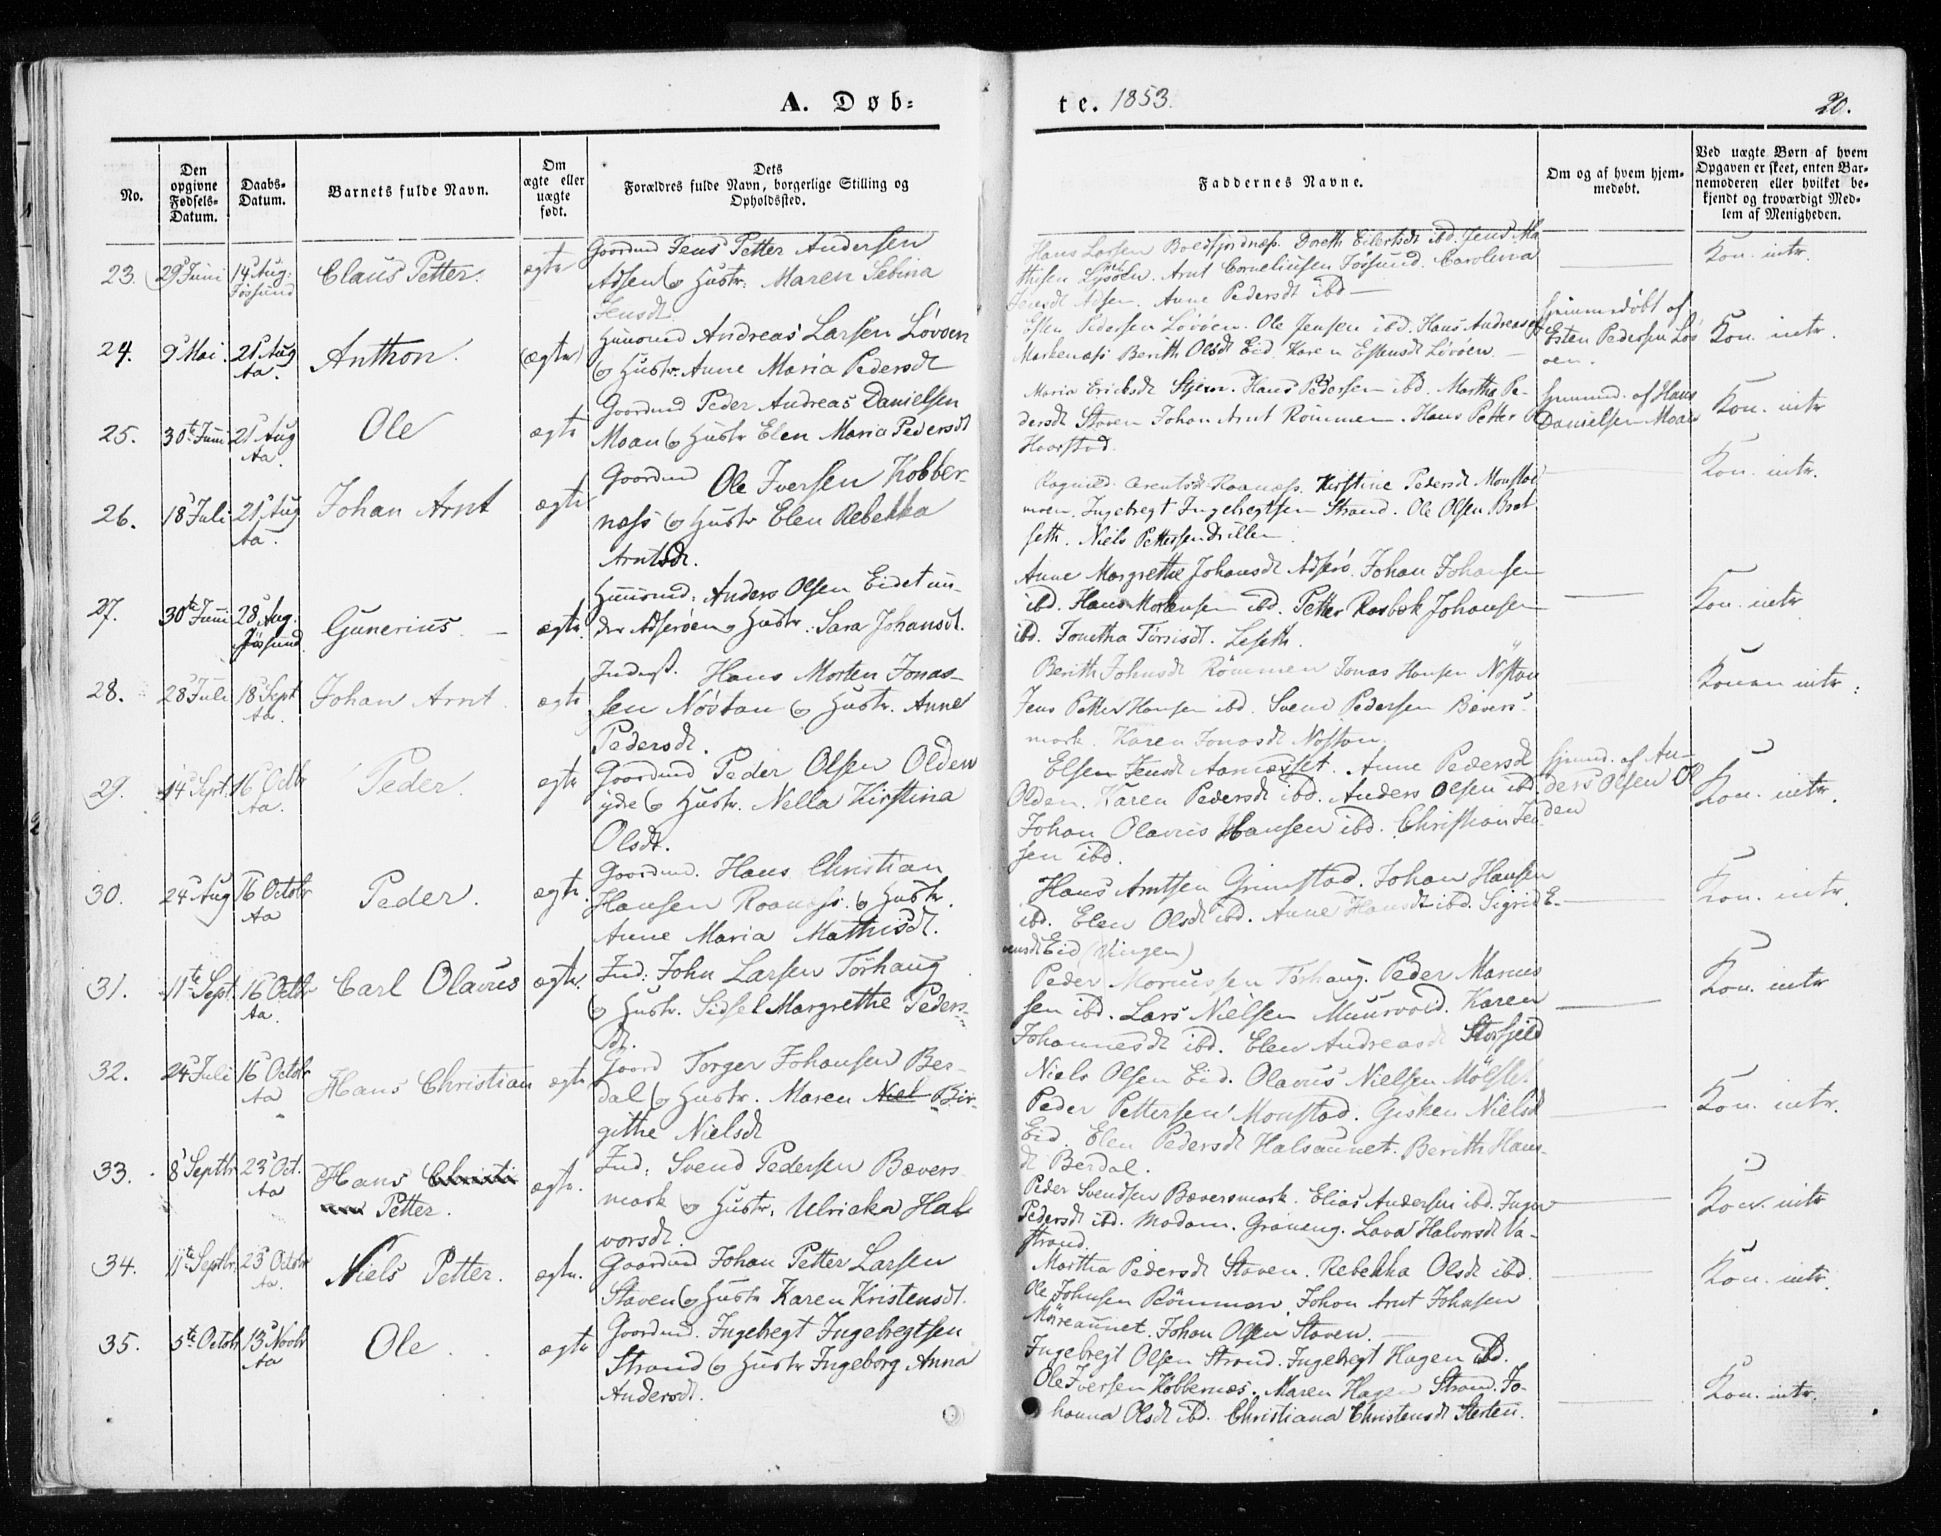 A. Døb=
te. 1853.
20.
No.
Den opgivne Fødsels-Datum.
Daabs-Datum.
Barnets fulde Navn.
Om ægte eller uægte født.
Dets Forældres fulde Navn, borgerlige Stilling og Opholdssted.
Faddernes Navne.
Om og af hvem hjem-medøbt.
Ved uægte Børn af hvem
Opgaven er skeet, enten Bar-
nemoderen eller hvilket be-
kjendt og troværdigt Med-
lem af Menigheden.
23. 29 Juni 14 Aug: Jøssund Claus Petter. ægte
Gaardmd Jens Petter Andersen
Adsen og Hustr: Maren Sebina
Jensdt.
Hans Larsen Boldfjordnæss. Doreth Eilertsdt ibd. Jens Ma
thisen Lysöen. Arnt Corneliusen Jössund. Carolina
Jensdt Adsen. Anne Pedersdt ibd
Kon. intr.
24. 9 Mai. 21 Aug Aa. Anthon. ægte
Huusmd Andreas Larsen Lövöen
og Hustr. Anne Maria Pedersdt
Esten Pedersen Lövöen. Ole Jensen ibd. Hans Andreas
Markenæss Berith Olsdt Eid. Karen Estensdt Lövöen.
Hjemmedöbt af
Esten Pedersen Lö
öen.
Kon. intr.
25. 30te Juni 21 Aug Aa. Ole ægte
Gaardmd Peder Andreas Danielsen
Moan og Hustr Elen Maria Pedersdt
Maria Ericksdt Stjern. Hans Pedersen ibd. Martha Pe-
dersdt Staven Johan Arnt Römmen. Hans Petter
Haarstad.
Hjemmd. af Hans
Danielsen Moan
Kon. intr
26. 18 Juli 21 Aug Aa. Johan Arnt ægte
Gaardmd Ole Iversen Kobber-
næss og Hustr Elen Rebekka
Arntsdt.
Ragnild Arentsdt Roanæss. Kirstine Pedersdt Monstad
moen. Ingebregt Ingebregtsen Strand. Ole Olsen Brat
seth. Niels Pettersen
Kon. intr.
27. 30te Juni 28 Aug. Jössund Gunerius. ægte.
Huusmd: Anders Olsen Eidet un-
der Adseröen og Hustr: Sara Johansdt.
Anne Margrethe Johansdt Adserö. Johan Johansen
ibd. Hans Mortensen ibd. Petter Rosbek Johansen
ibd. Jonetha Törrisdt. Leseth.
Kon. intr
28. 28 Juli 18 Sept Aa. Johan Arnt. ægte
Inderst. Hans Morten Jonas-
sen Nöstan og Hustr. Anne
Pedersdt.
Berith Johnsdt Römmen Jonas Hansen Nöstan
Jens Petter Hansen ibd. Svend Pedersen Bævers-
mark. Karen Jonasdt Nöstan.
Konen intr:
29. 14 Sept. 16 Octbr Aa. Peder. ægte
Gaardmd Peder Olsen Olden
ydre og Hustr. Nella Kirstina
Olsdt.
Elsen Jensdt Aarnæsset. Anne Pedersdt
Olden. Karen Pedersdt ibd. Anders Olsen ibd.
Johan Olavus Hansen ibd. Christian Jen
sen ibd.
Hjemmd. af An-
ders Olsen Ol
den
Kon. intr.
30. 24 Aug 16 Octobr Aa Peder. ægte.
Gaardmd. Hans Christian
Hansen Roanæss. og Hustr.
Anne Maria Mathisdt.
Hans Arntsen Grimstad. Johan Hansen
ibd. Elen Olsdt ibd. Anne Hansdt ibd. Sigrid E-
vensdt Eid (Vingen)
Kon. intr.
31. 11te Sept. 16 Octbr Aa. Carl Olavus ægte.
Ind: John Larsen Törhaug
og Hustr. Sidsel Margrethe Peders-
dt.
Peder Mariussen Törhaug. Peder Marius
sen ibd. Lars Nielsen Muurvold. Karen
Johannesdt ibd. Elen Andreasdt Storfjeld
Kon. intr
32. 24 Juli 16 Octobr Aa Hans Christian ægte
Gaard Torger Johansen Ber-
dal og Hustr. Maren Niel Bir-
githe Nielsdt
Niels Olsen Eid. Olavus Nielsen Mölslet.
Peder Pettersen Monstad. Gisken Nielsdt
Eid. Elen Pedersdt Halsaunet. Berith Hans-
dt Berdal.
Kon. intr.
33. 8 Septbr 23 Oct. Aa Hans Christi
an Petter. ægte.
Ind: Svend Pedersen Bævers
mark og Hustr, Ulricka Hal
vorsdt.
Peder Svendsen Bæversmark. Elias Andersen ibd. Inger
Pedersdt ibd. Madam. Gröneng. Lava Halvorsdt Va-
strand.
Kon. intr
34. 11te Septbr. 23 Octobr Aa. Niels Petter. ægte.
Gaardmd Johan Petter Larsen
Staven og Hustr Karen Kristensdt.
Martha Pedersdt Staven. Rebekka Olsdt ibd.
Ole Johnsen Römmen. Johan Arnt Johnsen
Möreaunet. Johan Olsen Staven.
Kon. intr.
35. 5te Octobr 13 Novbr Aa Ole. ægte
Gaardmd. Ingebregt Ingebregtsen
Strand og Hustr Ingeborg Anna
Andersdt.
Ingebregt Olsen Strand. Ingebregt Hagen ibd.
Ole Iversen Kobbernæs. Maren Hagen Strand. Jo-
hanna Olsdt ibd. Christiana Christensdt Sterten.
Kon. intr.